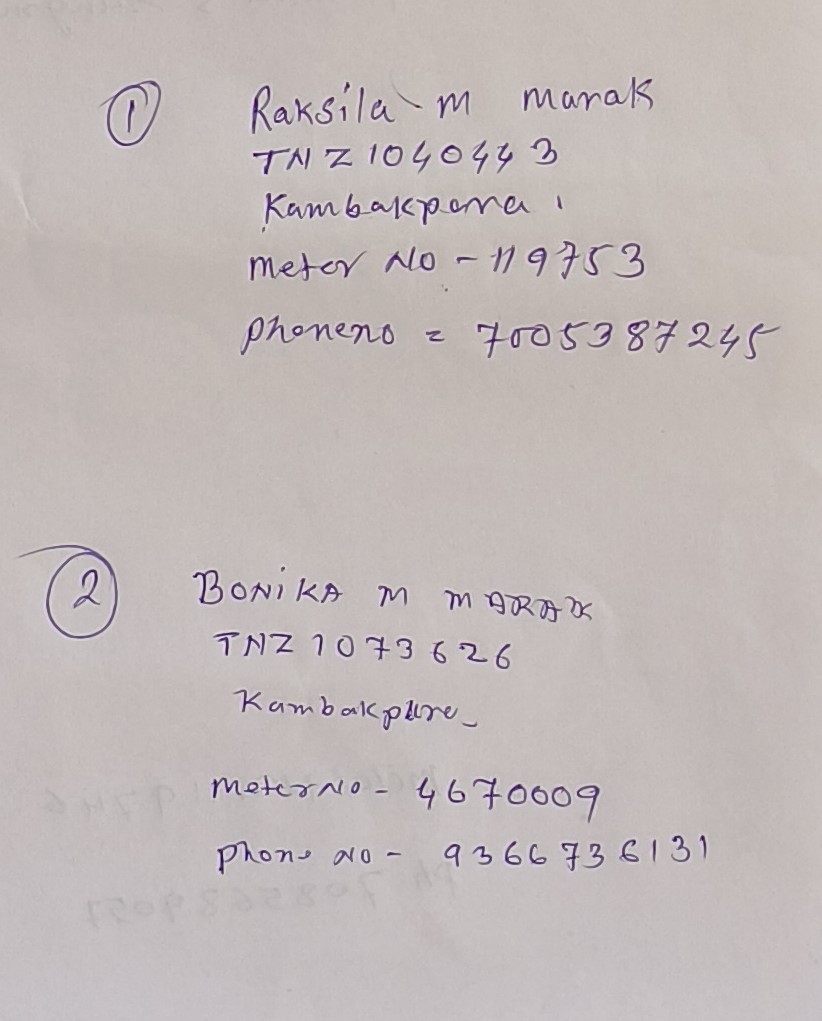 1
Raksila m marak
TNZ1040443
Kambakpara
meter No - 119753
phoneno = 7005387245
2
BONIKA M MARAK
TNZ1073626
Kambakpure
meterNo - 4670009
phone no - 9366736131